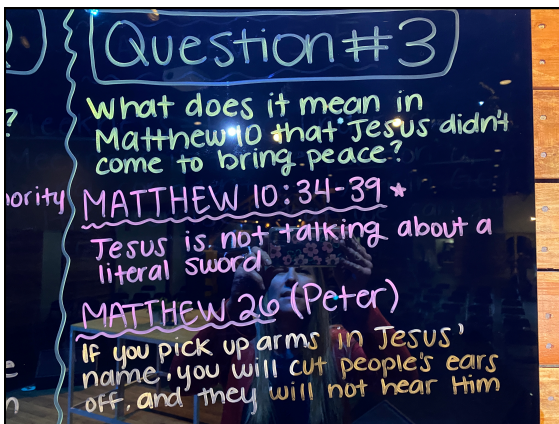 Question #3
?
What does it mean in
Matthew 10 that Jesus didn't
come to bring peace?
MATTHEW 10:34-39 *
Jesus is not talking about a
literal sword
MATTHEW 26 (Peter)
If you pick up arms in Jesus'
name, you will cut people's ears
off, and they will not hear Him